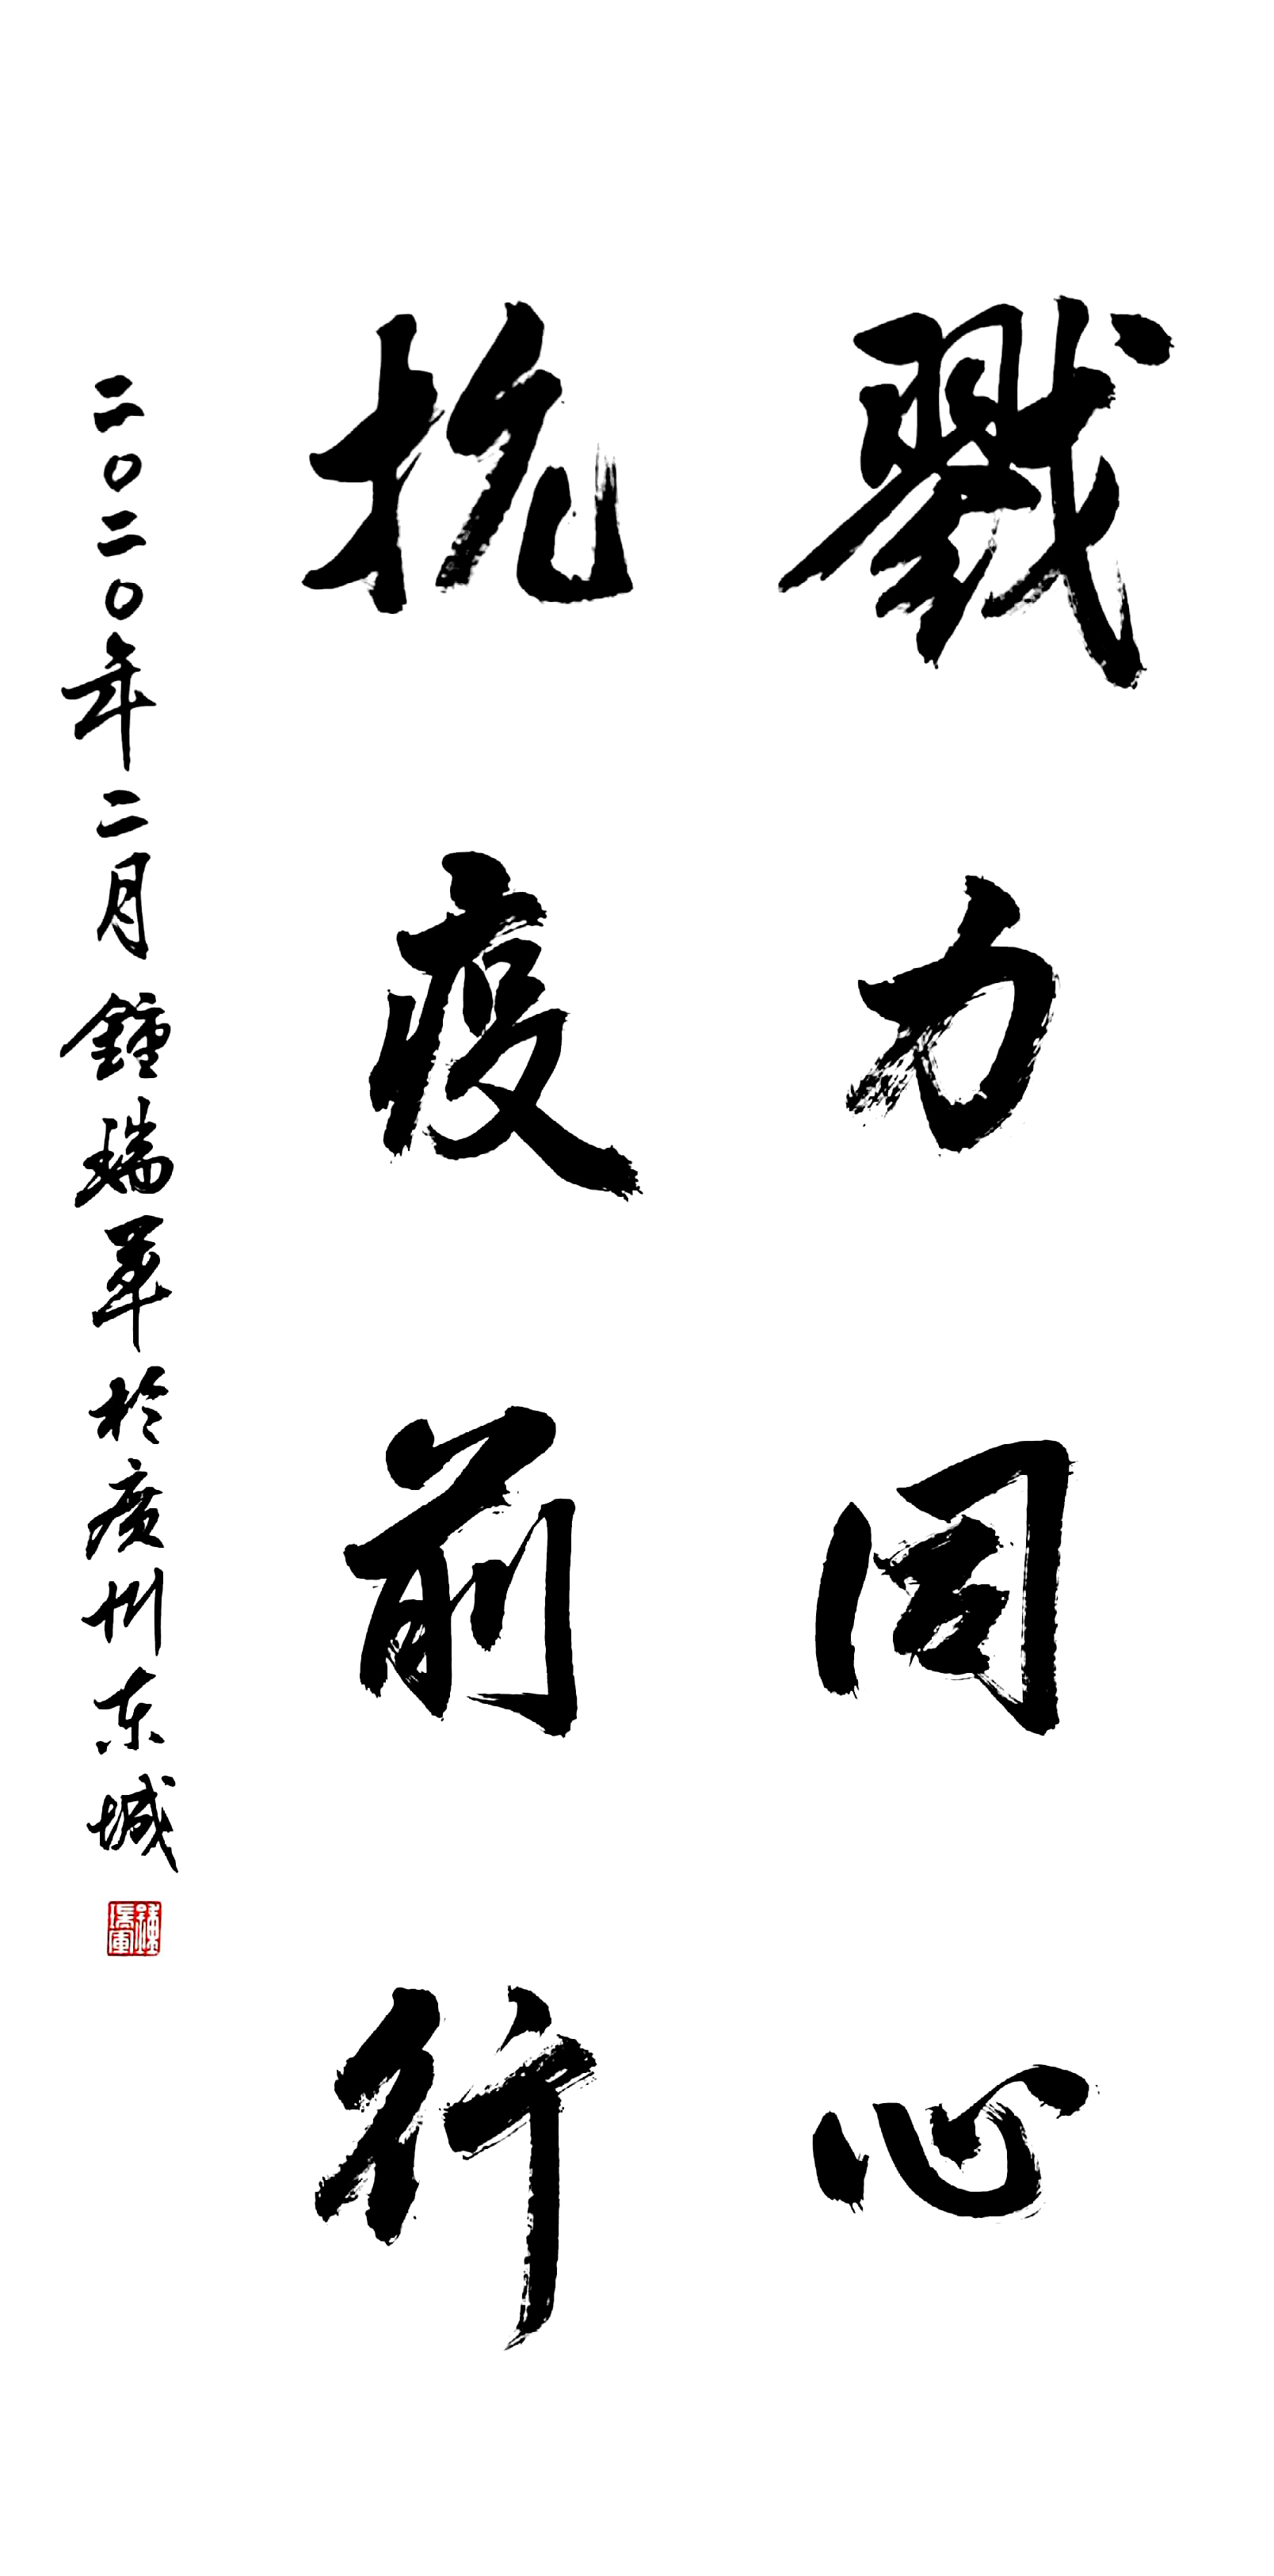 戮力同心
抗疫前行
二〇二〇年二月鍾瑞軍於廣州东城
鍾瑞軍